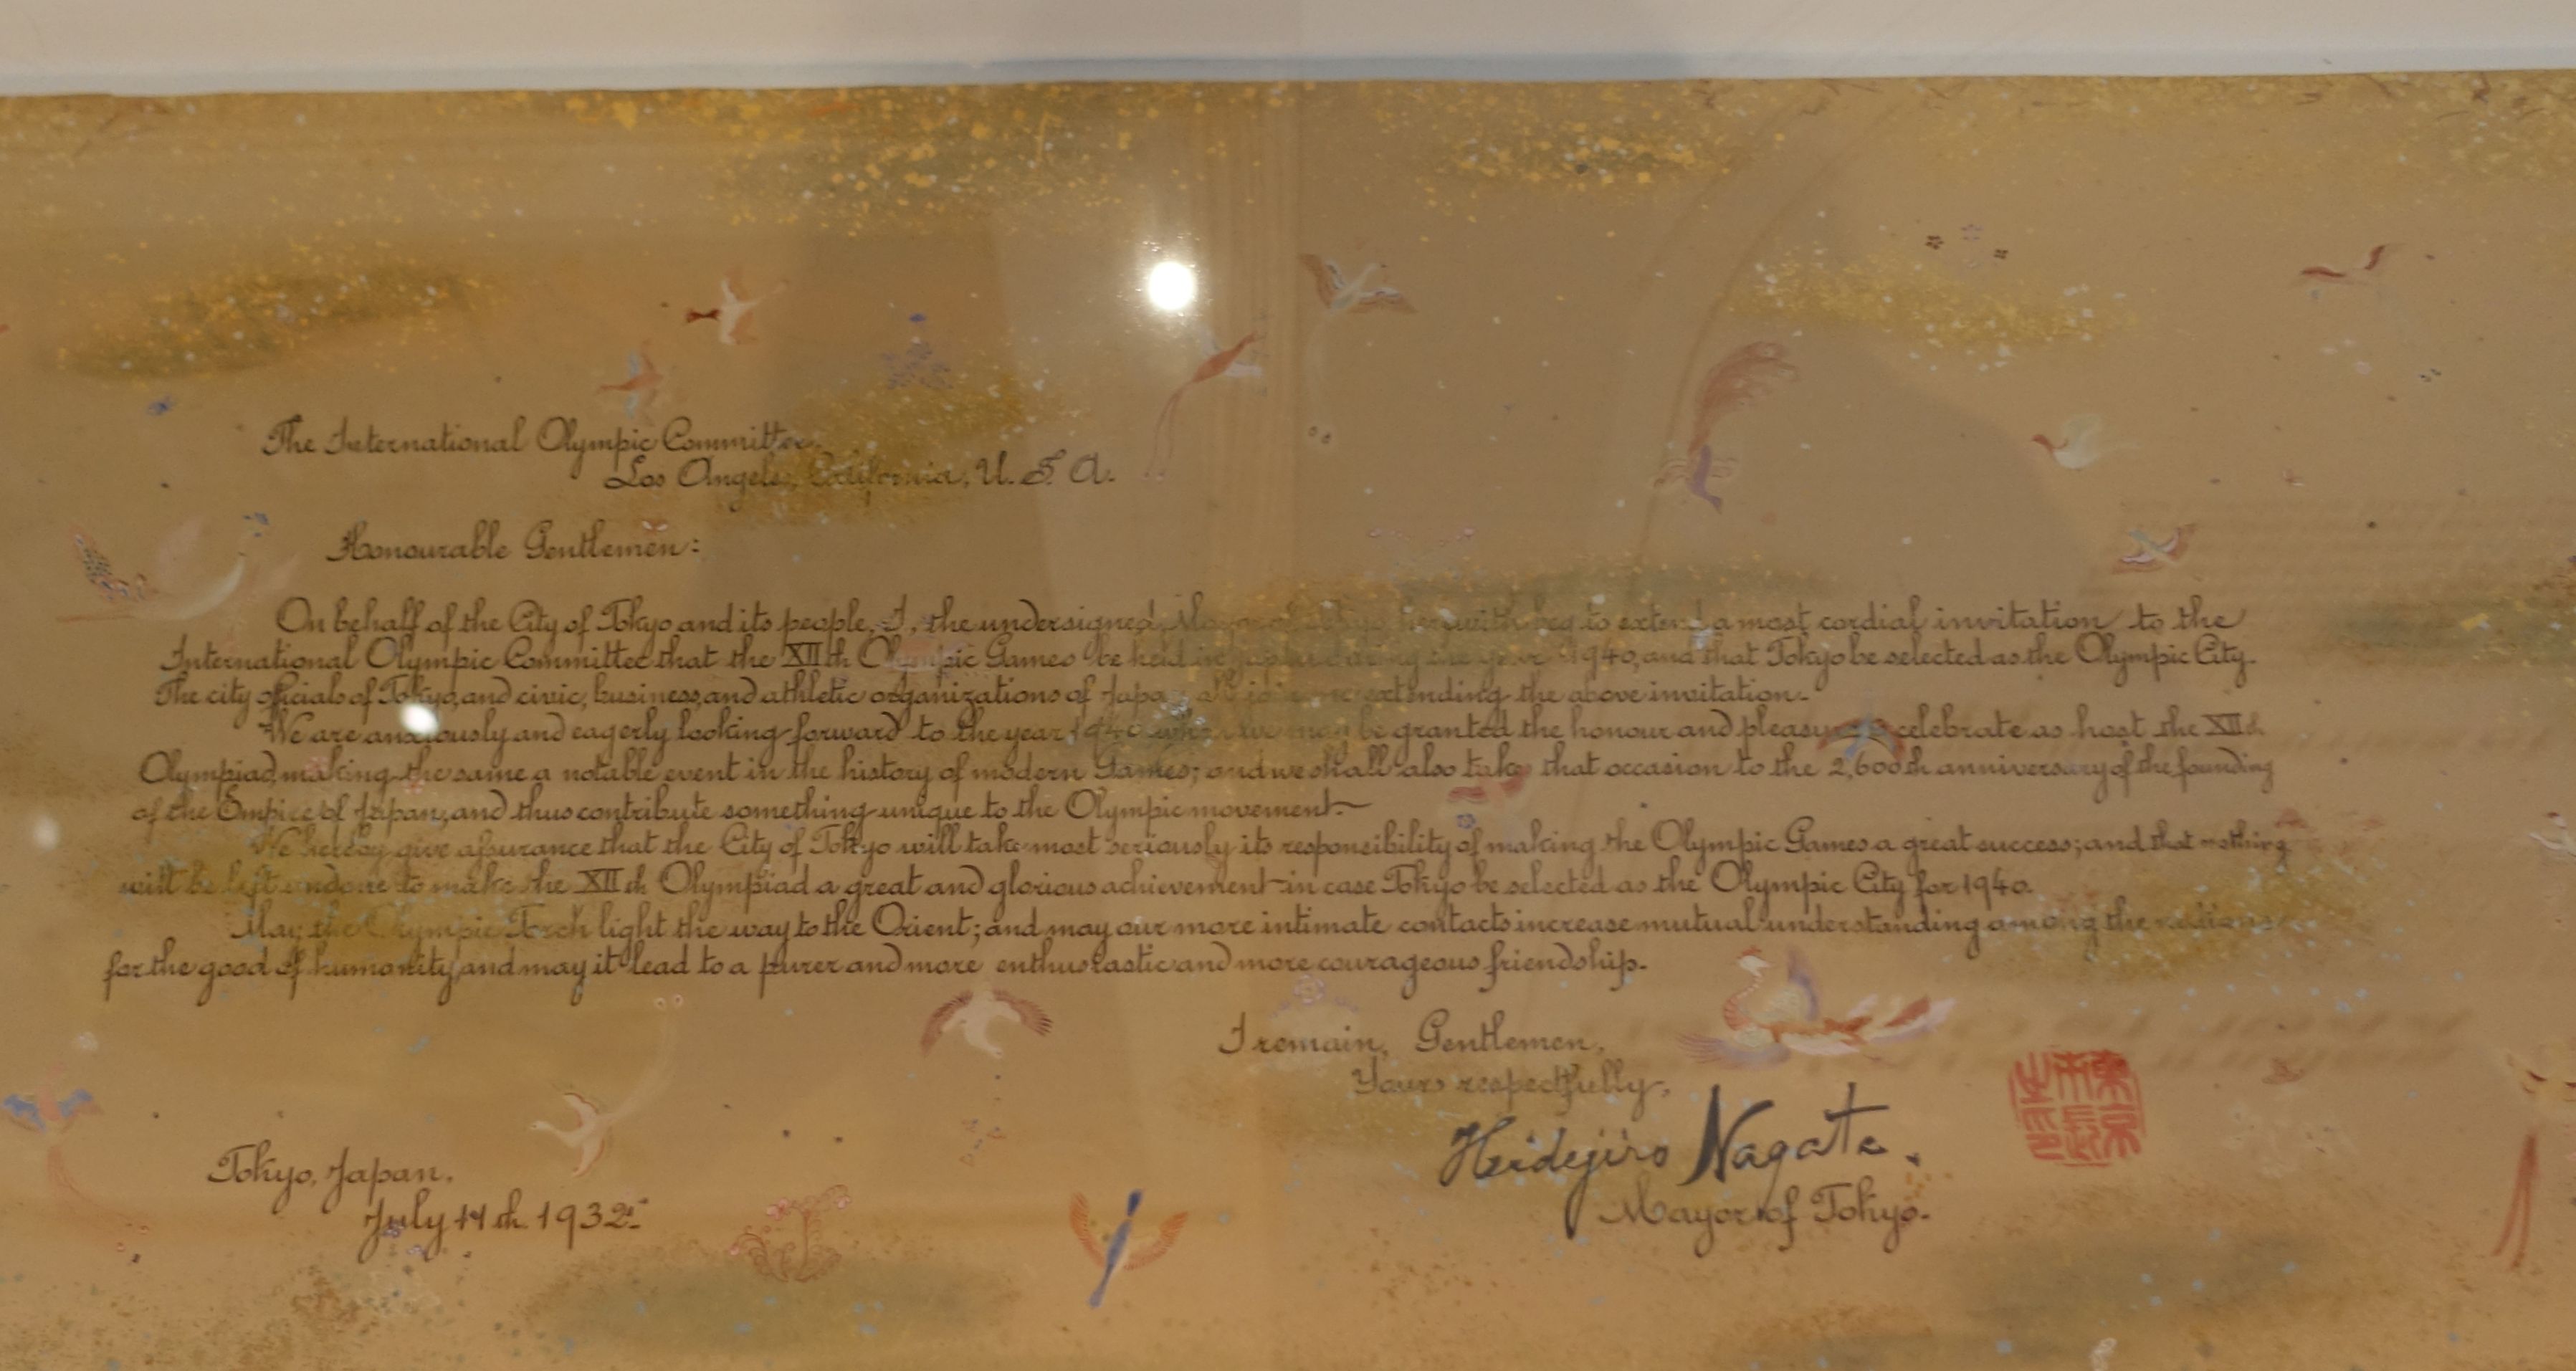 The International Olympic Committee,
Los Angeles, California, U. S. A.
Honourable Gentlemen:
On behalf of the City of Tokyo and its people, I, the undersigned, Mayor of Tokyo, herewith beg to extend a most cordial invitation to the
International Olympic Committee that the XIIth Olympic Games be held in Japan during the year 1940, and that Tokyo be selected as the Olympic City.
The city officials of Tokyo, and civic, business, and athletic organizations of Japan all join me extending the above invitation.
We are anxiously and eagerly looking forward to the year 1940 when we may be granted the honour and pleasure to celebrate as host the XIIth
Olympiad, making the same a notable event in the history of modern Games; and we shall also take that occasion to the 2,600th anniversary of the founding
of the Empire of Japan, and thus contribute something unique to the Olympic movement.
We hereby give assurance that the City of Tokyo will take most seriously its responsibility of making the Olympic Games a great success; and that nothing
will be left undone to make the XIIth Olympiad a great and glorious achievement in case Tokyo be selected as the Olympic City for 1940.
May the Olympic Torch light the way to the Orient; and may our more intimate contacts increase mutual understanding among the nations
for the good of humanity, and may it lead to a purer and more enthusiastic and more courageous friendship.
I remain, Gentlemen,
Yours respectfully,
Heidejiro Nagata.
Mayor of Tokyo.
東京市長之印
Tokyo, Japan.
July 11th. 1932.